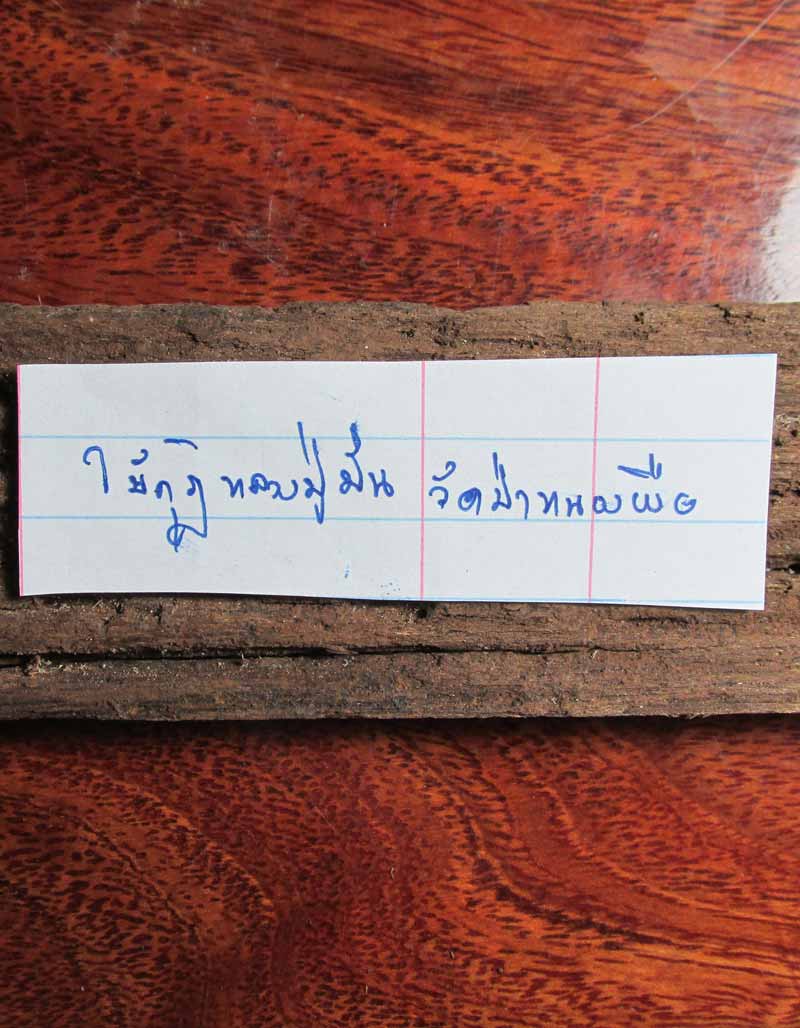 ไม้กุฏิ หลวงปู่มั่น วัดป่าหนองผือ